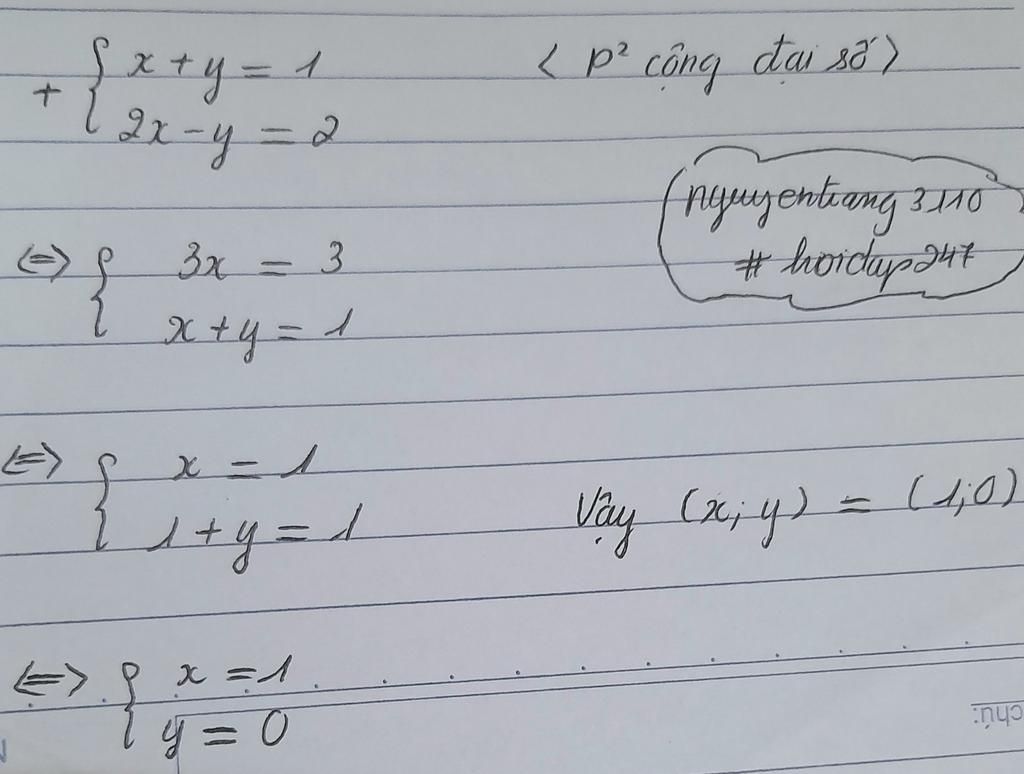 + { x + y = 1
2x - y = 2
< P² cộng đại số >
nguyentrang 3110
# hoidap247
<=> { 3x = 3
x + y = 1
<=> { x = 1
1 + y = 1
Vậy (x; y) = (1; 0)
<=> { x = 1
y = 0
chú: